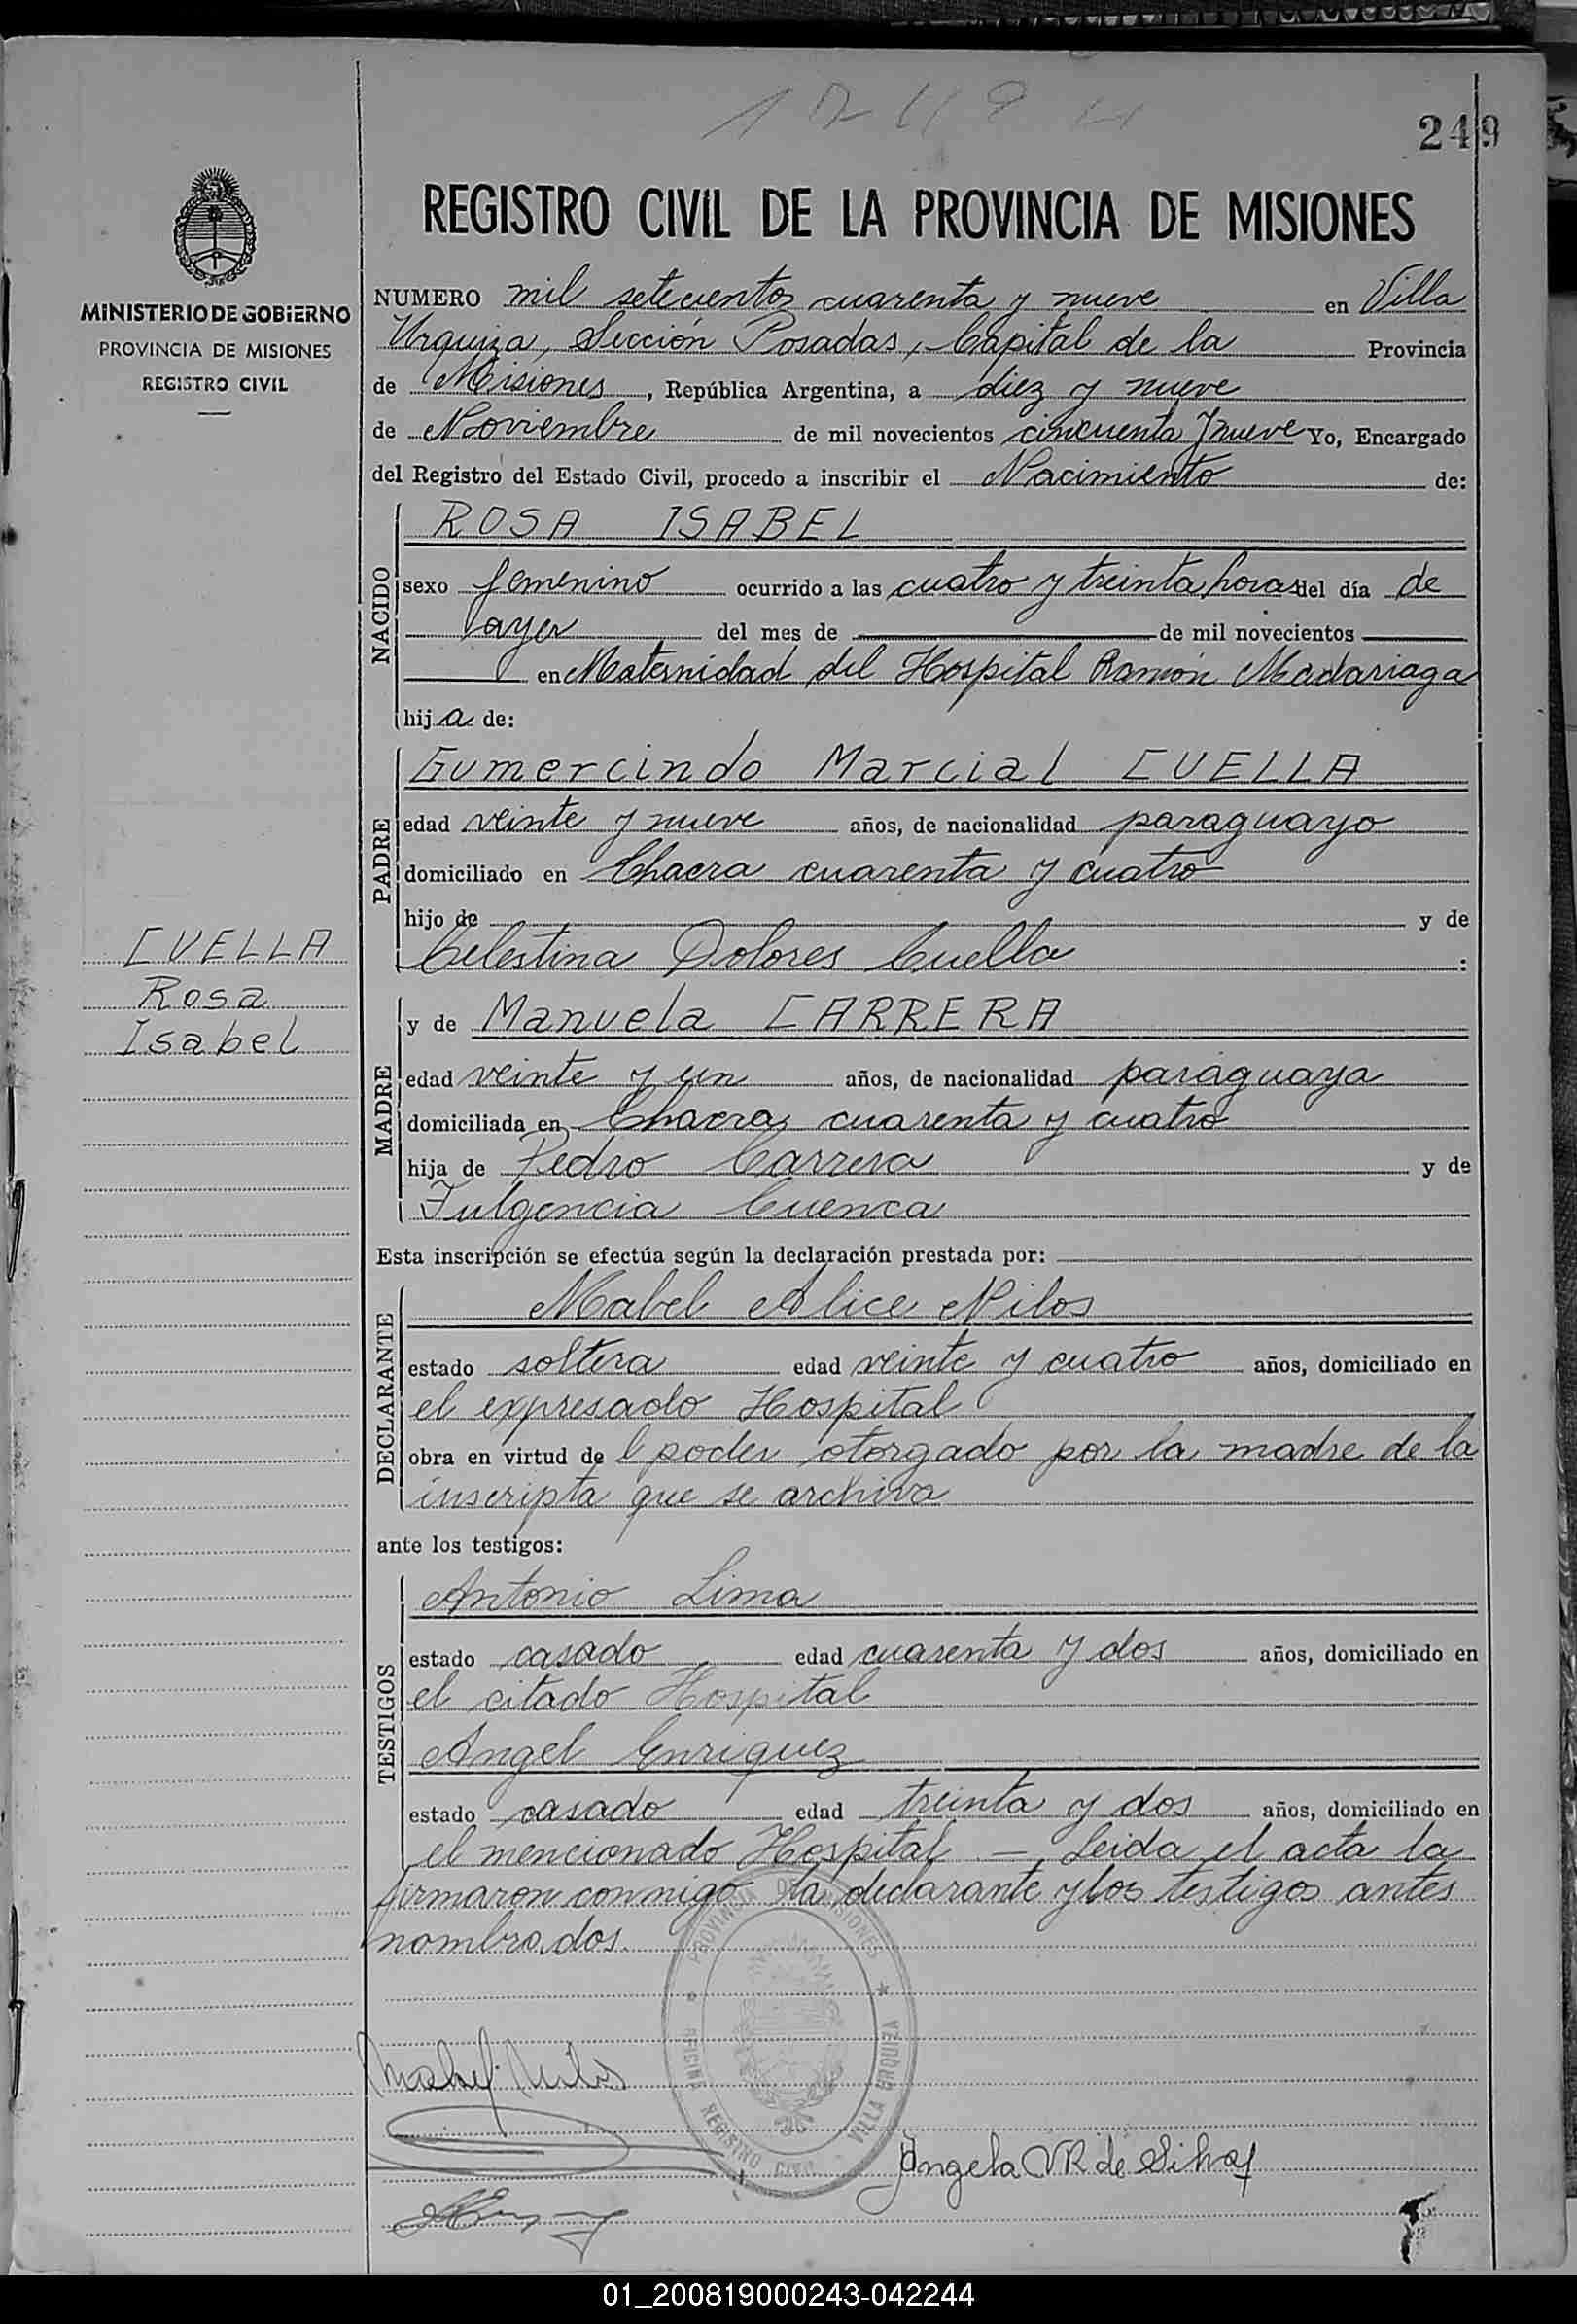 249
REGISTRO CIVIL DE LA PROVINCIA DE MISIONES
MINISTERIO DE GOBIERNO
PROVINCIA DE MISIONES
REGISTRO CIVIL
NUMERO mil setecientos cuarenta y nueve en Villa
Urquiza, Sección Posadas, Capital de la Provincia
de Misiones, República Argentina, a diez y nueve
de Noviembre de mil novecientos cincuenta y nueve Yo, Encargado
del Registro del Estado Civil, procedo a inscribir el Nacimiento de:
NACIDO
ROSA ISABEL
sexo femenino ocurrido a las cuatro y treinta horas del día de
ayer del mes de de mil novecientos
en Maternidad del Hospital Ramón Madariaga
hija de:
PADRE
Gumercindo Marcial CUELLA
edad veinte y nueve años, de nacionalidad paraguayo
domiciliado en Chacra cuarenta y cuatro
hijo de y de
Celestina Dolores Cuella :
CUELLA
Rosa
Isabel
MADRE
y de Manuela CARRERA
edad veinte y un años, de nacionalidad paraguaya
domiciliada en Chacra cuarenta y cuatro
hija de Pedro Carrera y de
Fulgencia Cuenca
Esta inscripción se efectúa según la declaración prestada por:
DECLARANTE
Mabel Alice Nilos
estado soltera edad veinte y cuatro años, domiciliado en
el expresado Hospital
obra en virtud de l poder otorgado por la madre de la
inscripta que se archiva
ante los testigos:
TESTIGOS
Antonio Lima
estado casado edad cuarenta y dos años, domiciliado en
el citado Hospital
Angel Enriquez
estado casado edad treinta y dos años, domiciliado en
el mencionado Hospital. — Leida el acta la
firmaron conmigo la declarante y los testigos antes
nombrados.
PROVINCIA DE MISIONES
OFICINA REGISTRO CIVIL VILLA URQUIZA
Mabel Nilos
Angela VR de Silva
01_200819000243-042244